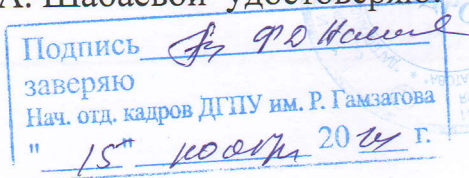 А. Шабаевой удостоверяю.
Подпись
заверяю
Нач. отд. кадров ДГПУ им. Р. Гамзатова
"15" ноября 20 г.